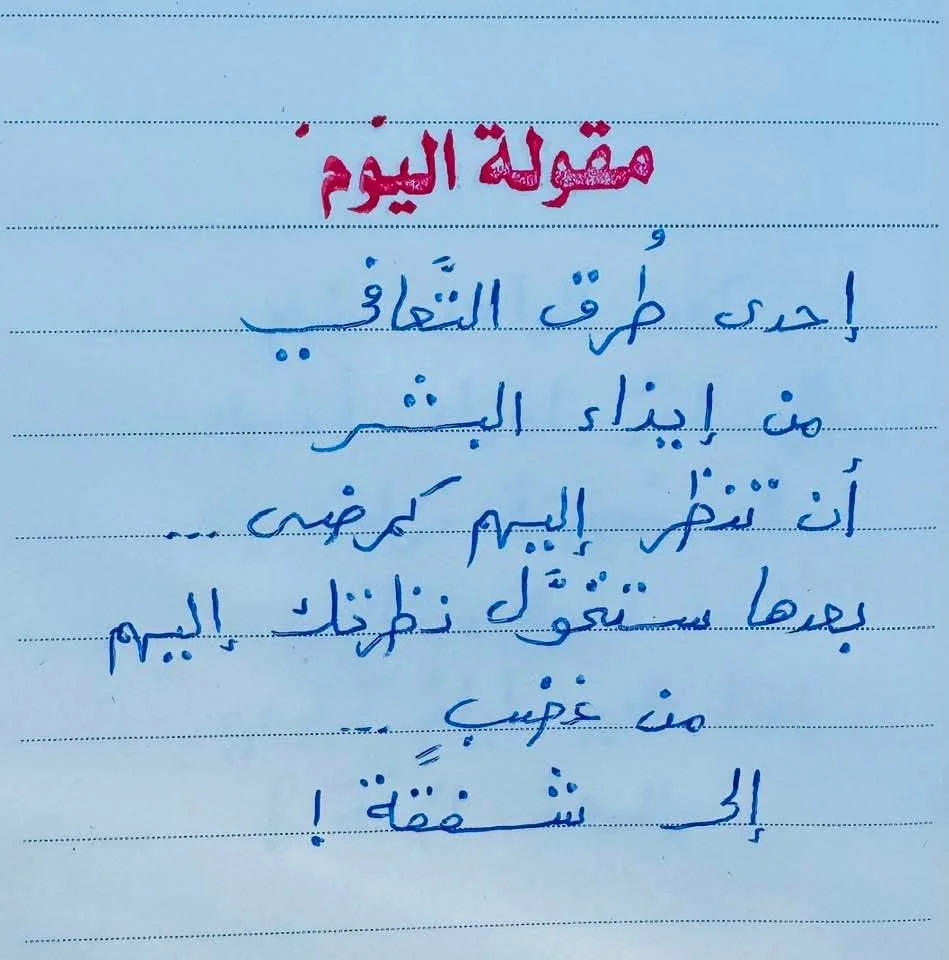 مقولة اليوم
إحدى طُرق التَّعافي
من إيذاء البشر
أن تنظر إليهم كمرضى ...
بعدها ستتحوَّل نظرتك إليهم
من غضبٍ ...
إلى شفقة !